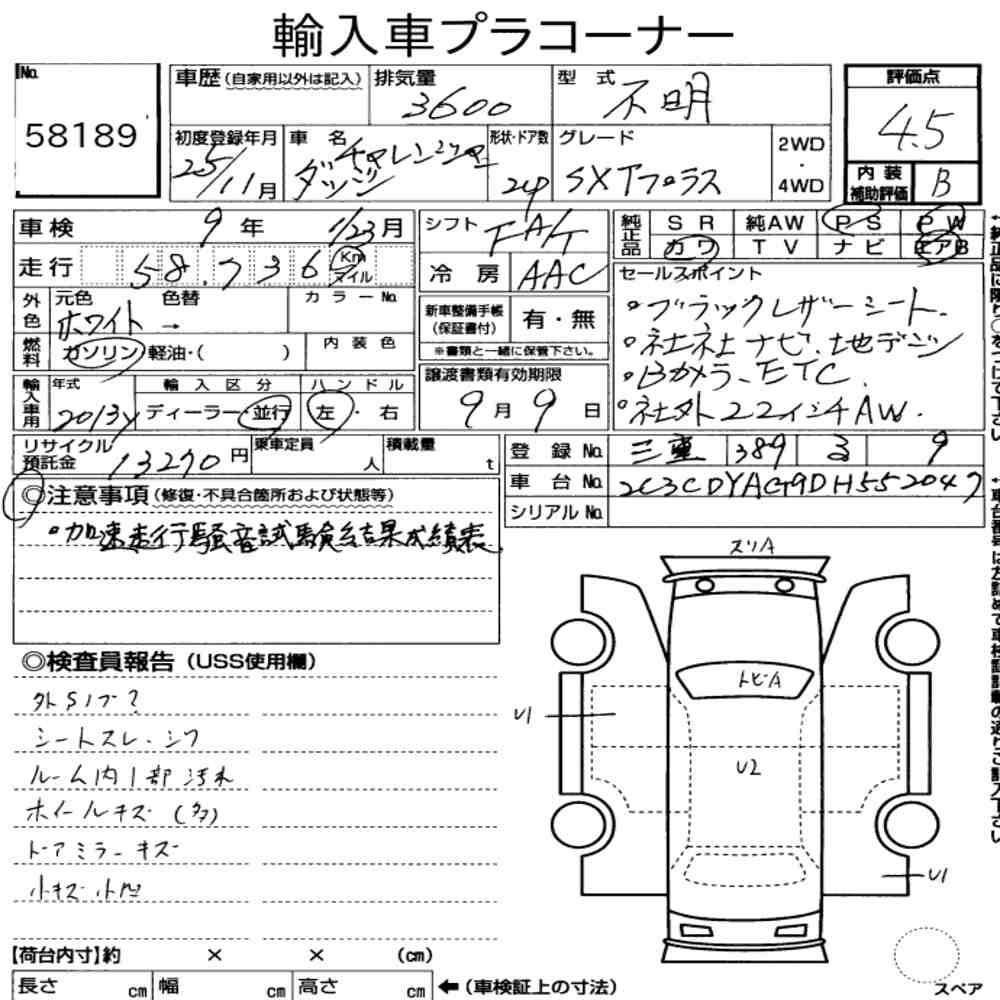 輸入車プラコーナー
No.
58189
車歴(自家用以外は記入)
排気量
3600
型 式
不明
評価点
4.5
初度登録年月
25/11月
車 名
ダッジ
チャレンジャー
形状・ドア数
2ドア
グレード
SXTプラス
2WD
・
4WD
内 装
補助評価
B
車検 9年 1/23月
走行 58,736 Km マイル
シフト FAT
冷 房 AAC
純正品
SR 純AW PS PW
カワ TV ナビ エアB
外色
元色 色替 カラーNo.
ホワイト →
燃料
ガソリン 軽油・( )
内装色
新車整備手帳
(保証書付)
有・無
※書類と一緒に保管下さい。
セールスポイント
・ブラックレザーシート.
・社社ナビ.地デジ
・Bカメラ、ETC.
・社外22インチAW.
輸入車用
年式
2013y
輸入区分
ディーラー・並行
ハンドル
左・右
譲渡書類有効期限
9月9日
リサイクル
預託金 13270円
乗車定員
人
積載量
t
登 録 No. 三重 389 る 9
車 台 No. 2C3CDYAG9DH552047
シリアルNo.
◎注意事項(修復・不具合箇所および状態等)
・加速走行騒音試験結果成績表.
スリA
トビA
U1
U2
U1
◎検査員報告(USS使用欄)
シートスレ.シワ
ルーム内1部汚れ
ホイールキズ(多)
ドアミラーキズ
小キズ小凹
【荷台内寸】約 × × (cm)
長さ cm 幅 cm 高さ cm
←(車検証上の寸法)
スペア